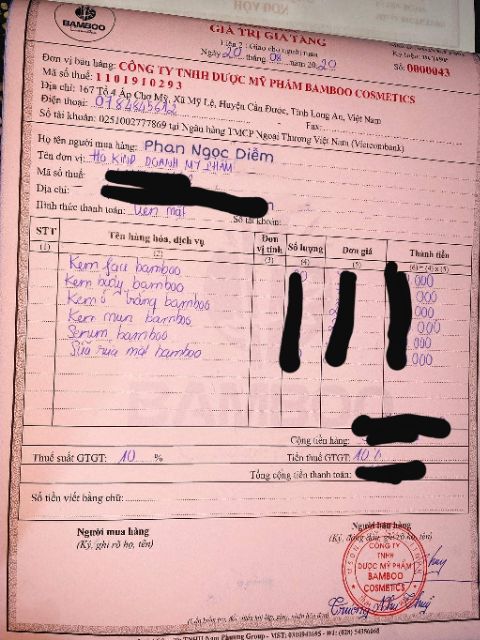 HÓA ĐƠN
BAMBOO
GIÁ TRỊ GIA TĂNG
Liên 2: Giao cho người mua
Ngày 20 tháng 08 năm 2020
Số: 0000043
Đơn vị bán hàng: CÔNG TY TNHH DƯỢC MỸ PHẨM BAMBOO COSMETICS
Mã số thuế: 1101910293
Địa chỉ: 167 Tổ 4 Ấp Chợ Mỹ, Xã Mỹ Lệ, Huyện Cần Đước, Tỉnh Long An, Việt Nam
Điện thoại: Fax:
Số tài khoản: 0251002777869 tại Ngân hàng TMCP Ngoại Thương Việt Nam (Vietcombank)
Họ tên người mua hàng: Phan Ngọc Diễm
Tên đơn vị: HỘ KINH DOANH MỸ PHẨM
Mã số thuế:
Địa chỉ:
Hình thức thanh toán: Tiền mặt Số tài khoản:
STT Tên hàng hóa, dịch vụ Đơn vị tính Số lượng Đơn giá Thành tiền
(1) (2) (3) (4) (5) (6) = (4) x (5)
Kem face bamboo 000
Kem body bamboo 000
Kem ủ trắng bamboo 000
Kem mụn bamboo 000
Serum bamboo 000
Sữa rửa mặt bamboo 000
BAMBOO
Cộng tiền hàng:
Thuế suất GTGT: 10 % Tiền thuế GTGT: 10%
Tổng cộng tiền thanh toán:
Số tiền viết bằng chữ:
Người mua hàng Người bán hàng
(Ký, ghi rõ họ, tên) (Ký, đóng dấu, ghi rõ họ, tên)
CÔNG TY
TNHH
DƯỢC MỸ PHẨM
BAMBOO
COSMETICS
Trương Như Thùy
(Cần kiểm tra, đối chiếu khi lập, giao, nhận hóa đơn)